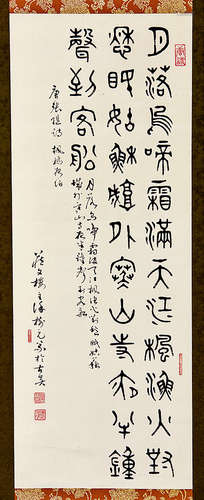 月落烏啼霜滿天江楓漁火對
愁眠姑蘇城外寒山寺夜半鐘
聲到客船
月落烏啼霜滿天江楓漁火對愁眠姑蘇
城外寒山寺夜半鐘聲到客船
唐張繼詩 楓橋夜泊
於古吳